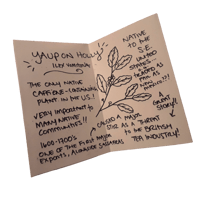 YAUPON HOLLY
ILEX VOMITORIA
THE ONLY NATIVE
CAFFEINE-CONTAINING
PLANT IN THE US!
VERY IMPORTANT TO
MANY NATIVE
COMMUNITIES!!
1600-1700'S
ONE OF THE FIRST MAJOR
EXPORTS, ALONGSIDE SASSAFRAS
NATIVE
TO THE
S.E.
UNITED
STATES -
TRADED AS
FAR AS
NEW
MEXICO???
A
GREAT
STORY!!
CAUSED A MAJOR
STIR AS A THREAT
TO THE BRITISH
TEA INDUSTRY!